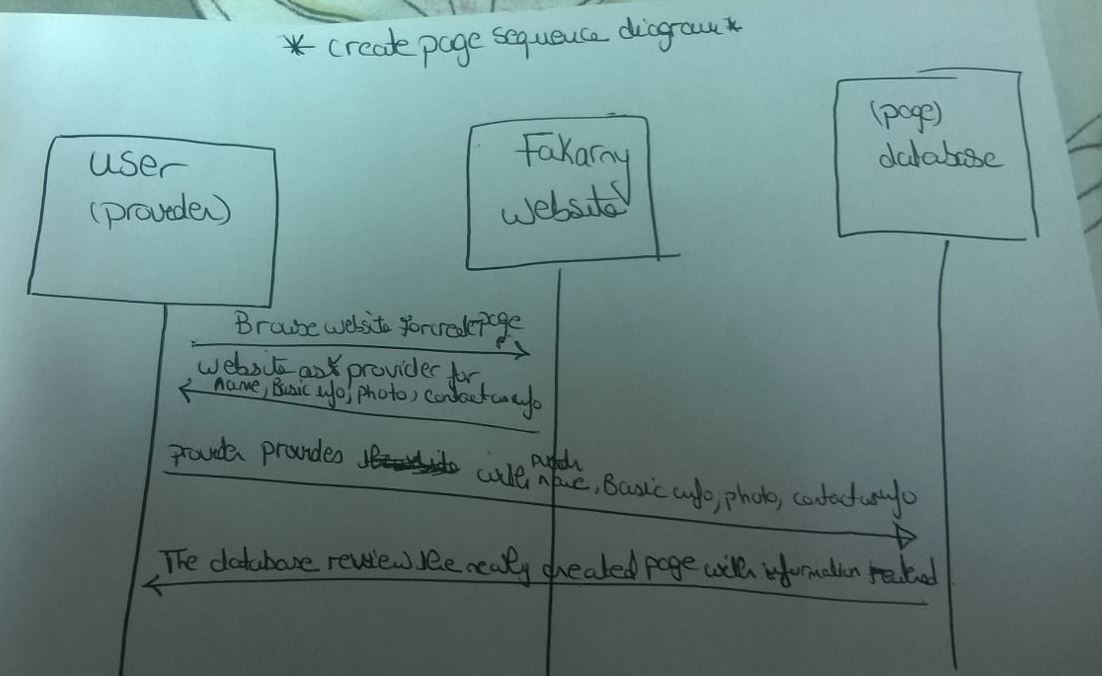 * create page sequence diagram *
user
(proveder)
Fakarny
website
(page)
database
Browse website for creat page
website ask provider for
name, Basic info, photo, contact us info
provider provides with name, Basic info, photo, contact us info
The database review the newly created page with information